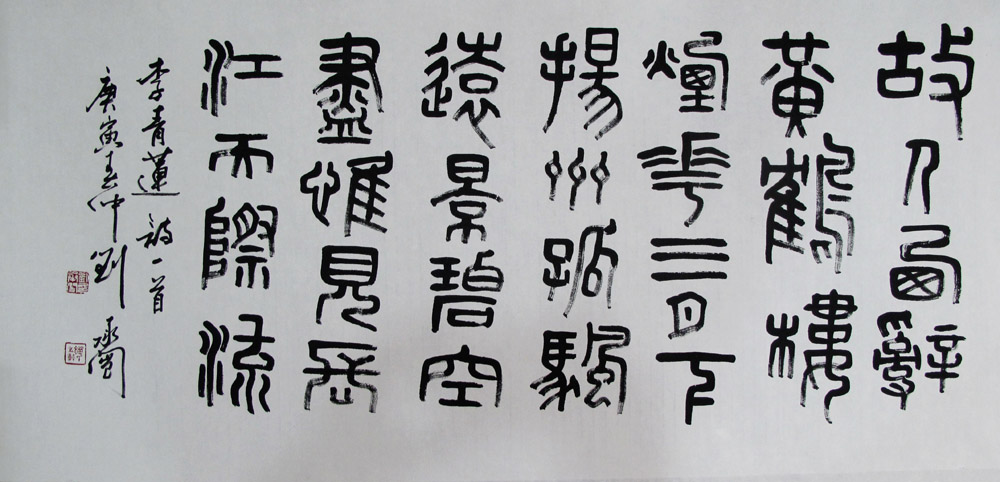 故人西辭
黃鶴樓
煙花三月下
揚州孤颿
遠景碧空
盡惟見長
江天際流
李青蓮詩一首
庚寅春仲劉